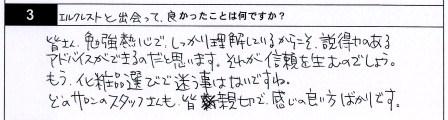 3 エルクレストと出会って、良かったことは何ですか?
皆さん、勉強熱心で、しっかり理解しているからこそ、説得力のある
アドバイスができるのだと思います。それが信頼を生むのでしょう。
もう、化粧品選びで迷う事はないですね。
どのサロンのスタッフさんも、皆親切で、感じの良い方ばかりです。